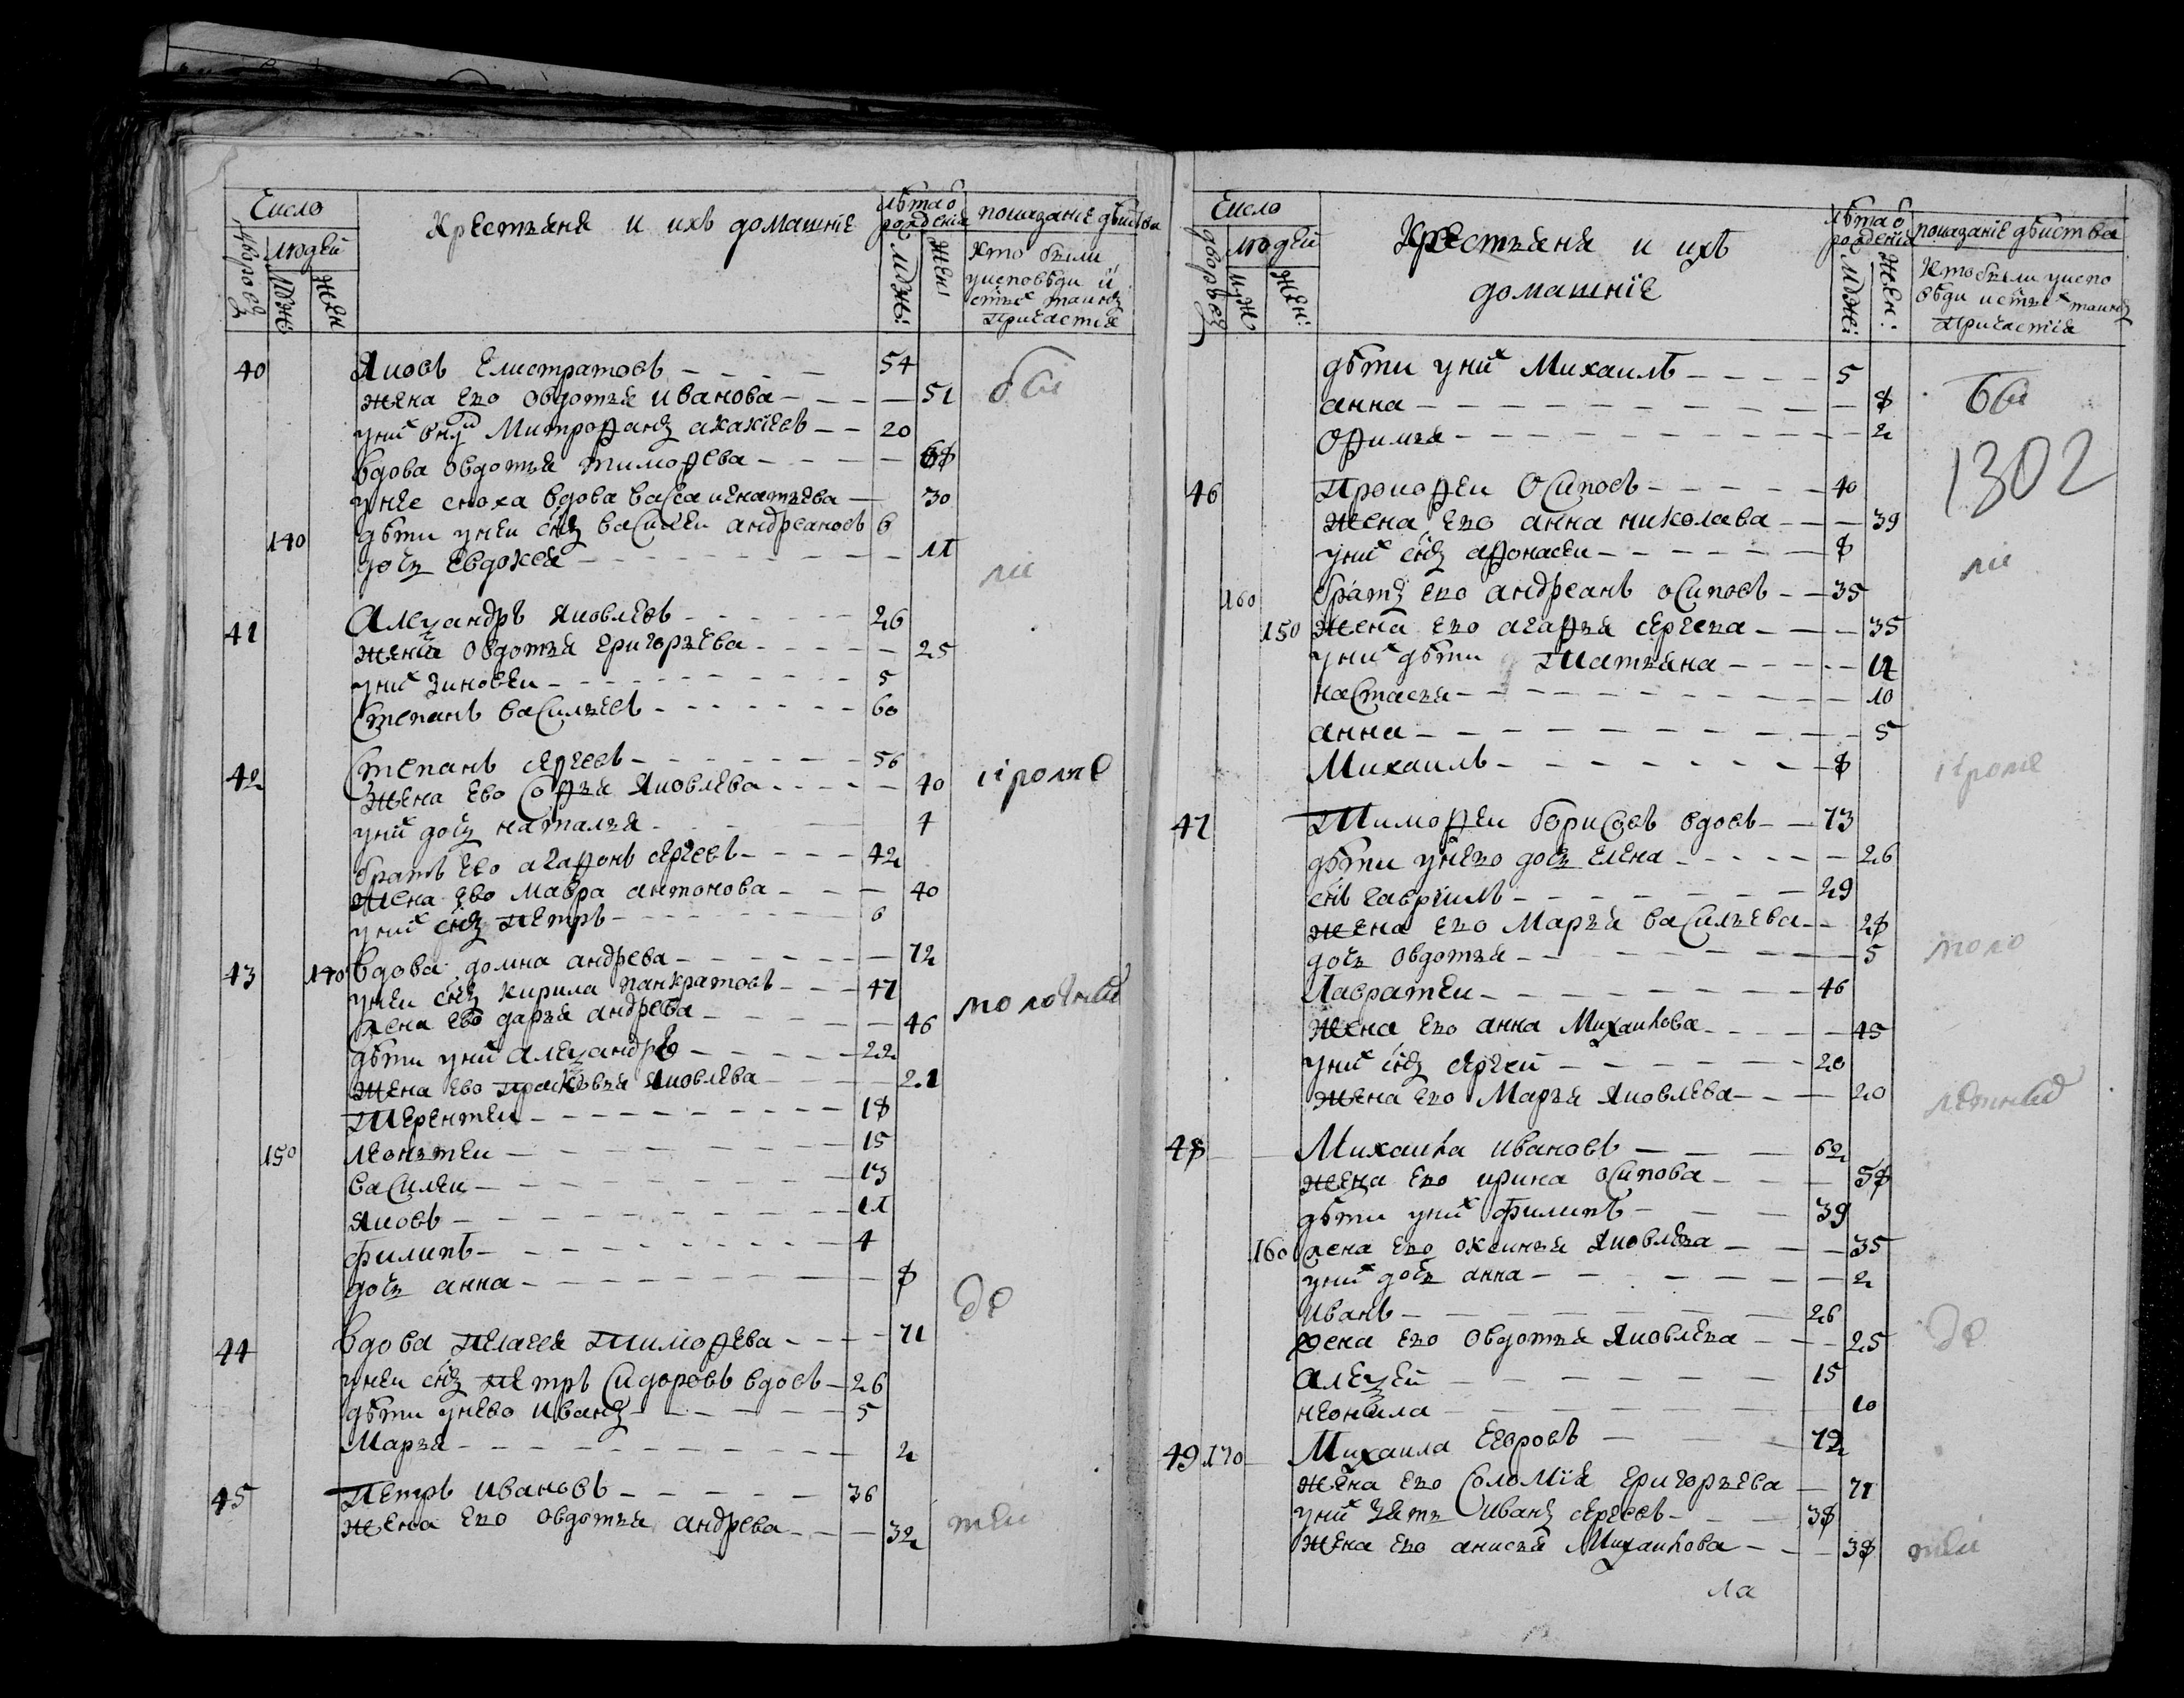 Число
людей
дворовъ
муж
жен
Крестьяня и ихъ домашние
лѣта ѿ рождения
муж:
жен:
показание дѣиства
Кто были
уисповѣди и
стых таинъ
Причастия
40 Яковъ Елистратовъ 54
жена его Овдотья иванова 51
у них внук Митрофанъ акакиевъ 20
вдова овдотья тимофева 68
у нее сноха вдова васса игнатьева 30
140 дѣти у неи снъ василеи андреановъ 6
дочь Евдокея 11
41 Александръ яковлевъ 26
жена Овдотья григорьева 25
у них Зиновеи 5
Степанъ васильевъ 60
42 Степанъ сергеевъ 56
Жена ево Софья яковлева 40
у них дочь наталья 7
братъ ево агафонъ сергеевъ 42
жена ево мавра антонова 40
у них снъ петръ 6
43 140 вдова домна андрева 72
у неи снъ кирила панкратовъ 47
жена ево дарья андрева 46
дѣти у них александръ 22
жена ево прасковья яковлева 21
Терентеи 18
150 леонтеи 15
василеи 13
яковъ 11
филипъ 4
дочь анна 8
44 вдова пелагея тимофева 71
у неи снъ петръ Сидоровъ вдовъ 26
дѣти у нево иванъ 5
Марья 2
45 Петръ ивановъ 36
жена его овдотья андрева 32
бы
ли
кроме
молочный
де
теи
Число
людей
дворовъ
муж
жен:
Крестьяня и ихъ
домашние
лѣта ѿ рождения
муж:
жен:
показание дѣиства
Кто были уиспо
вѣди и стых таинъ
Причастия
дѣти у них Михаилъ 5
анна 8
Офимья 2
46 Прокофеи Осиповъ 40
жена его анна николава 39
у них снъ афонасеи 8
160 братъ его андреанъ осиповъ 35
150 жена его агафья сергева 35
у них дѣти Татьяна 12
настасья 10
анна 5
Михаилъ 8
47 Тимофеи борисовъ вдовъ 73
дѣти у него дочь елена 26
снъ гавриилъ 29
жена его Марья васильева 28
дочь овдотья 5
Лаврентеи 46
жена его анна Михаилова 45
у них снъ сергеи 20
жена его Марья яковлева 20
48 Михаила ивановъ 62
жена его ирина осипова 58
дѣти у них филипъ 39
160 жена его оксинья яковлева 35
у них дочь анна 2
иванъ 26
жена его овдотья яковлева 25
алексей 15
неонила 10
49 170 Михаила Егоровъ 72
жена его Соломия григорьева 71
у них зять иванъ сергеевъ 38
жена его анисья Михаилова 38
ла
бы
1302
ли
кроме
моло
летныхъ
де
теи